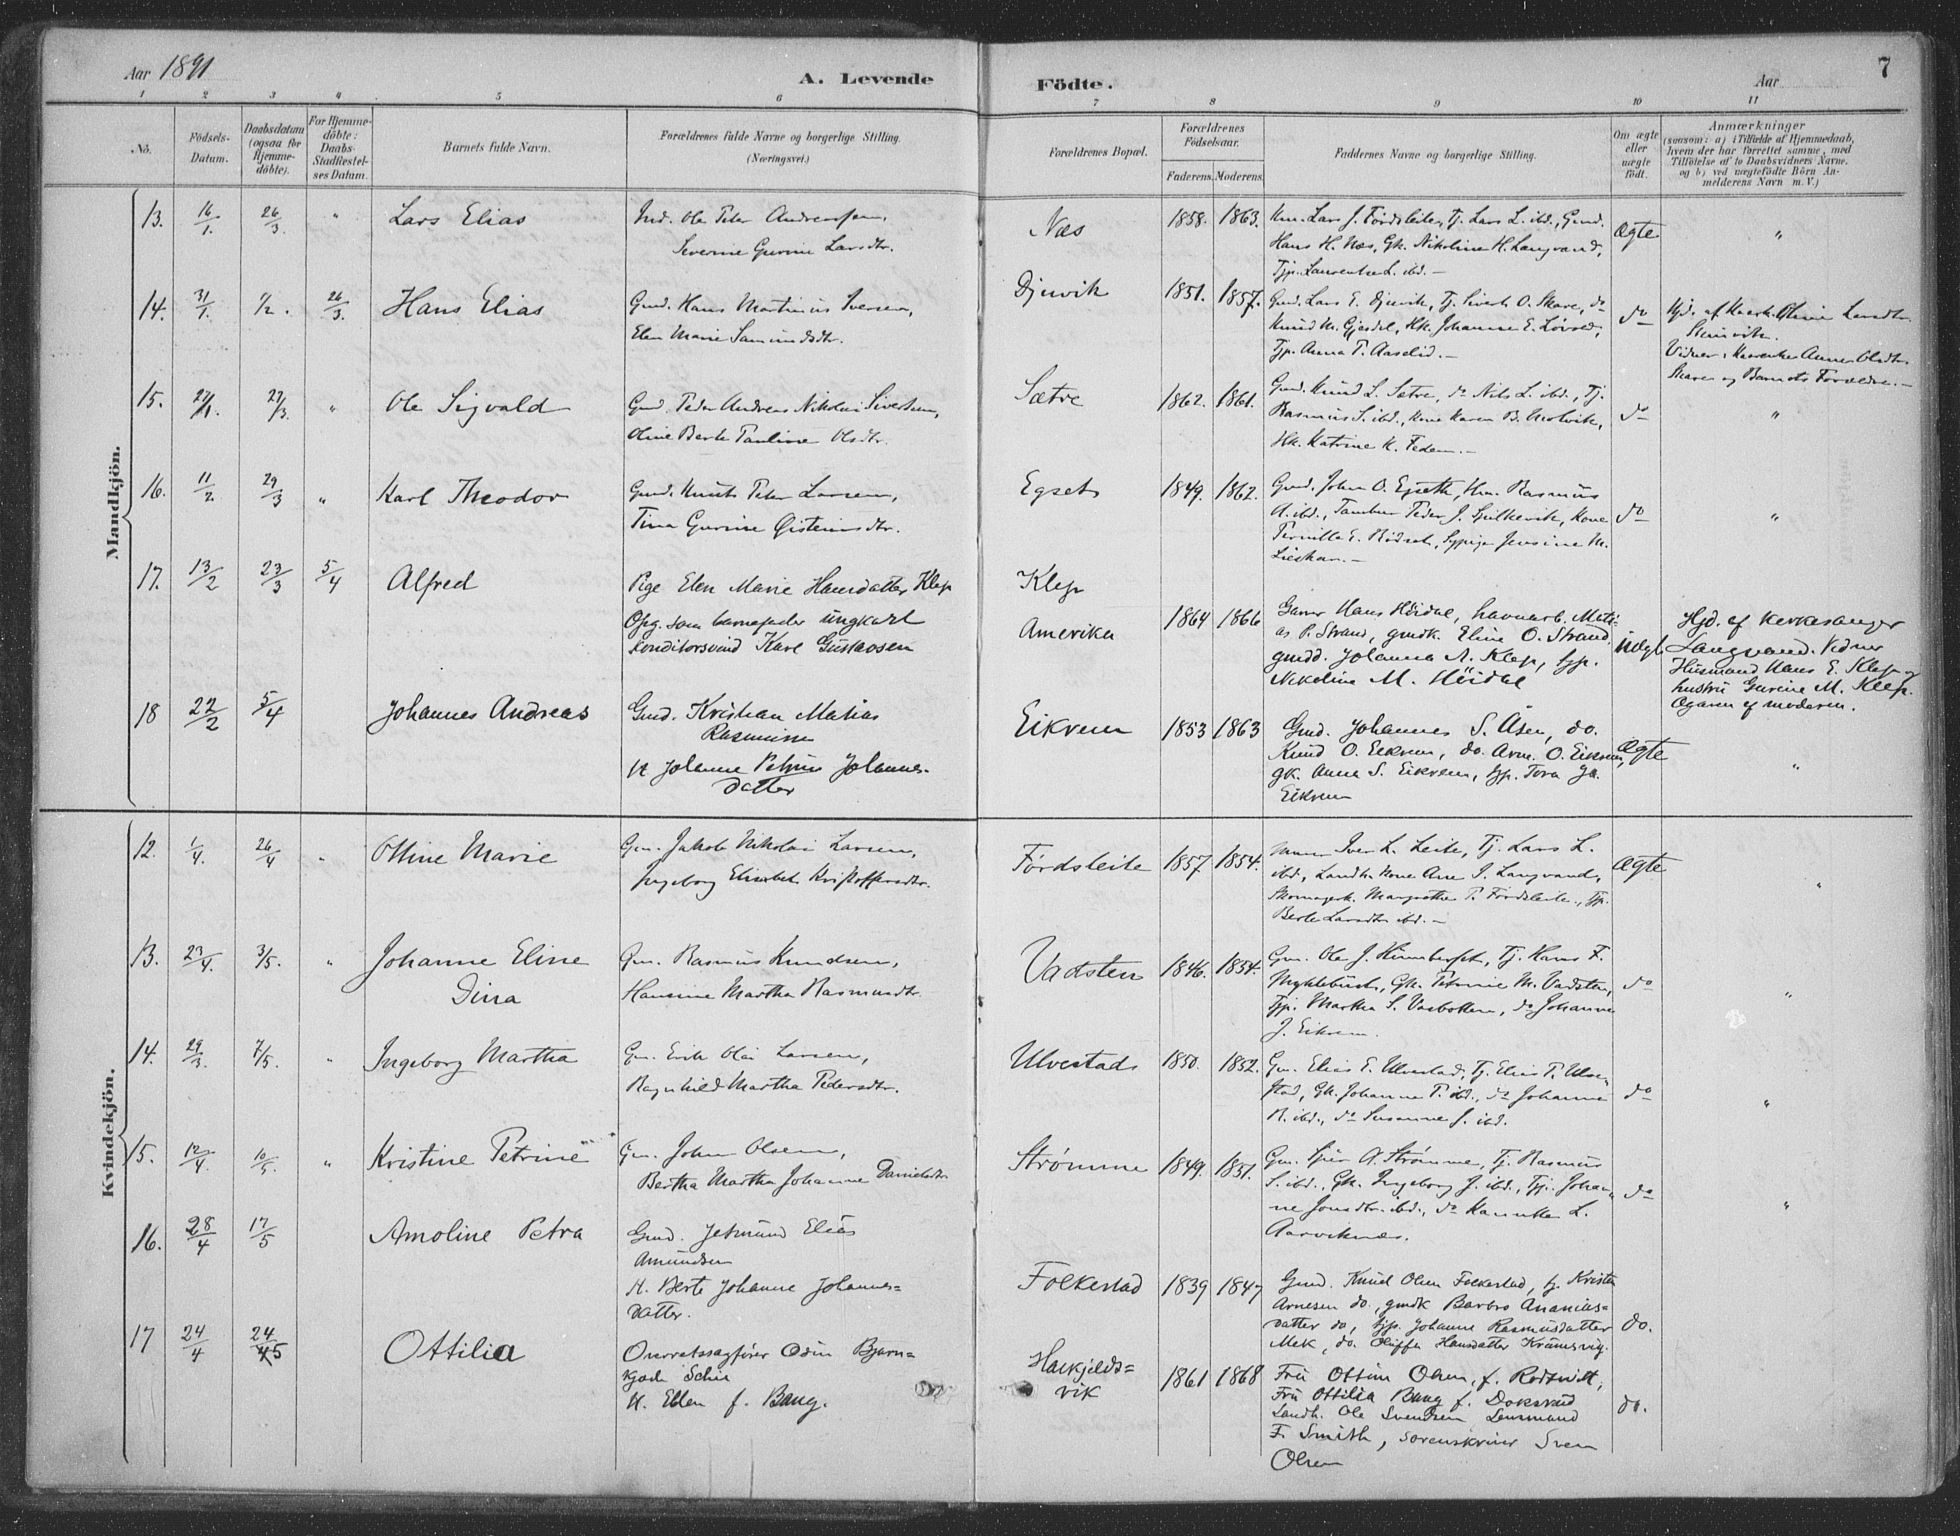 Aar 1891
A. Levende
Födte.
Aar
7
1 2 3 4 5 6 7 8 9 10 11
No.
Födsels-Datum.
Daabsdatum (ogsaa for Hjemme-döbte).
For Hjemme-döbte: Daabs-Stadfæstel-ses Datum.
Barnets fulde Navn.
Forældrenes fulde Navne og borgerlige Stilling. (Næringsvei.)
Forældrenes Bopæl.
Forældrenes Födselsaar.
Faderens. Moderens.
Faddernes Navne og borgerlige Stilling.
Om ægte eller uægte födt.
Anmærkninger
(saasom: a) i Tilfælde af Hjemmedaab,
hvem der har forrettet samme, med
Tilföielse af to Daabsvidners Navne.
og b) ved uægtefödte Börn An-
melderens Navn m. V.)
Mandkjön.
13. 16/1. 26/3 " Lars Elias
Ind. Ole Peter Andreassen,
Severine Gurine Larsdtr.
Næs 1858. 1863.
Km. Lars J. Førdsleite, Tj. Lars L. ibd., Gmd.
Hans H. Næs, Gk. Nikoline H. Langvand,
Tjp. Laurentse L. ibd. —
Ægte "
14. 31/1. 1/2. 26/3. Hans Elias
Gmd. Hans Martinus Iversen,
Elen Marie Samundsdtr.
Djuvik 1851. 1857.
Gmd. Lars E. Djuvik, Tj. Sivert O. Skare, do
Knud M. Gjesdal, Hk. Johanne E. Løvset,
Tjp. Anna T. Aaselid. —
do
Hjd. af Larsdtr.
Vidner: Anne Olsdtr.
Skare og Barnets Forældre. —
15. 27/1. 27/3. " Ole Sigvald
Gmd. Peder Andreas Nikolai Sivertsen,
Oline Berte Pauline Olsdtr.
Sætre 1862. 1861.
Gmd. Knud L. Sætre, do Nils L. ibd., Tj.
Rasmus S. ibd., Kone Karen B.
Hk. Katrine K.
do "
16. 11/2 29/3 " Karl Theodor
Gmd. Knut Peter Larsen,
Tina Gurine Øisteinsdtr.
Egset 1849. 1862.
Gmd. John O. Egseth, Km. Rasmus
A. ibd., Tambur Peder J. Kone
Pernille E. Rødset, Jensine M.
do "
17. 13/2 23/3 5/4 Alfred
Pige Elen Marie Hansdatter Klep
Opg. som barnefader ungkarl
konditorsvend Karl Gustavsen
Klep
Amerika 1864 1866
Hans Höidal, havnearb. Mati-
as P. Strand, gmdk. Eline O. Strand,
gmdd. Johanna A. Klep, tjp.
Nikoline M. Höidal
uægt
Hjd. af kirkesanger
Langvand. Vidner
Husmand Hans E. Klep og
hustru Gurine M. Klep.
Opgaven af moderen.
18 22/2 5/4 Johannes Andreas
Gmd. Kristian Matias
Rasmussen
H. Johanne Petrine Johannes-
datter
Eikrem 1853 1863
Gmd. Johannes S. Åsen, do.
Knud O. Eikrem, do. Arne O. Eikrem,
gk. Anna S. Eikrem, tjp. Tora
Eikrem
Ægte "
Kvindekjön.
12. 1/4. 26/4 " Ottine Marie
Gm. Jakob Nikolai Larsen,
Ingeborg Elisabet Kristoffersdtr.
Førdsleite 1857 1854.
Iver L. Leite, Tj. Lars L.
ibd., Landh. Kone Ane J. Langvand,
Skomagerk. Margrethe P. Førdsleite, Tjp.
Berte Larsdtr. ibd. —
Ægte "
13. 23/4. 3/5. " Johanne Eline
Dina
Gm. Rasmus Knudsen,
Hansine Martha Rasmusdtr.
Vadsten 1846. 1854.
Gm. Ole J. Tj. Hans F.
Myklebust, Gk. Petrine M. Vadsten,
Tjp. Martha S. Vasbotten, do Johanne
J. Eikrem.
do "
14. 29/3. 7/5. " Ingeborg Martha
Gm. Erik Olai Larsen,
Ragnhild Martha Pedersdtr.
Ulvestad 1850. 1852.
Gm. Elias E. Ulvestad, Tj. Elias P. Ulve-
stad, Gk. Johanne P. ibd., do Johanne
R. ibd., do Susanne J. ibd.
do "
15. 12/4. 10/5. " Kristine Petrine
Gm. John Olsen,
Bertha Martha Johanne Danielsdtr.
Strømme 1849. 1851.
Gm. A. Strømme, Tj. Rasmus
S. ibd., Gk. Ingeborg J. ibd., Tjp. Johan-
ne Jonsdtr. ibd., do L.
Aarviknæs.
do "
16. 28/4 17/5 Amoline Petra
Gmd. Jetmund Elias
Amundsen
H. Berte Johanne Johannes-
datter.
Folkestad 1839 1847
Gmd. Knud Olsen Folkestad, tj. Kristen
Arnesen do., gmdk Barbro Ananias-
datter do, tjp. Johanne Rasmusdatter
Mek, do. Oliffa Hansdatter Kramsvig.
do.
17 24/4 24/5 Ottilia
Overretssagförer Odin Bjørn-
gaard Schie
H. Ellen f. Bang.
Hareids-
vik 1861 1868
Fru Ottine Olsen, f.
Fru Ottilia Bang f.
Landh. Ole Svendsen Lensmand
F. Smith, sorenskriver Sven
Olsen
do.